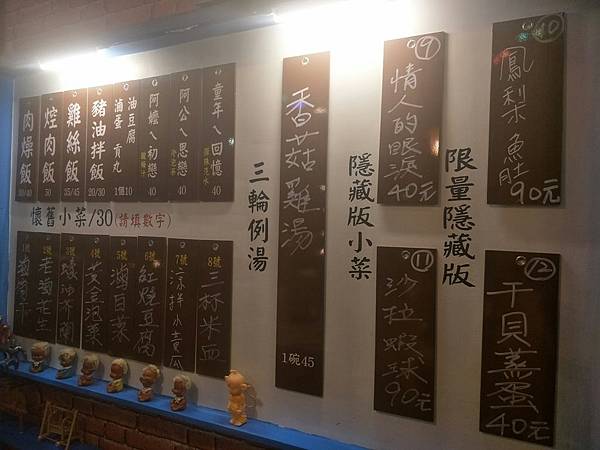 肉燥飯
30/40
焢肉飯
50
雞絲飯
35/45
豬油拌飯
20/30
油豆腐
滷蛋 貢丸
1個10
阿嬤ㄟ初戀
酸梅汁
40
阿公ㄟ思戀
40
童年ㄟ回憶
40
懷舊小菜/30(請填數字)
1號
2號
老滷花生
3號
4號
黃金泡菜
5號
滷白菜
6號
紅燒豆腐
7號
涼拌小黃瓜
8號
三杯米血
三輪例湯
香菇雞湯
1碗45
隱藏版小菜
9
情人的眼淚
40元
11
沙拉蝦球
90元
限量隱藏版
10
鳳梨魚肚
90元
12
干貝蒸蛋
40元